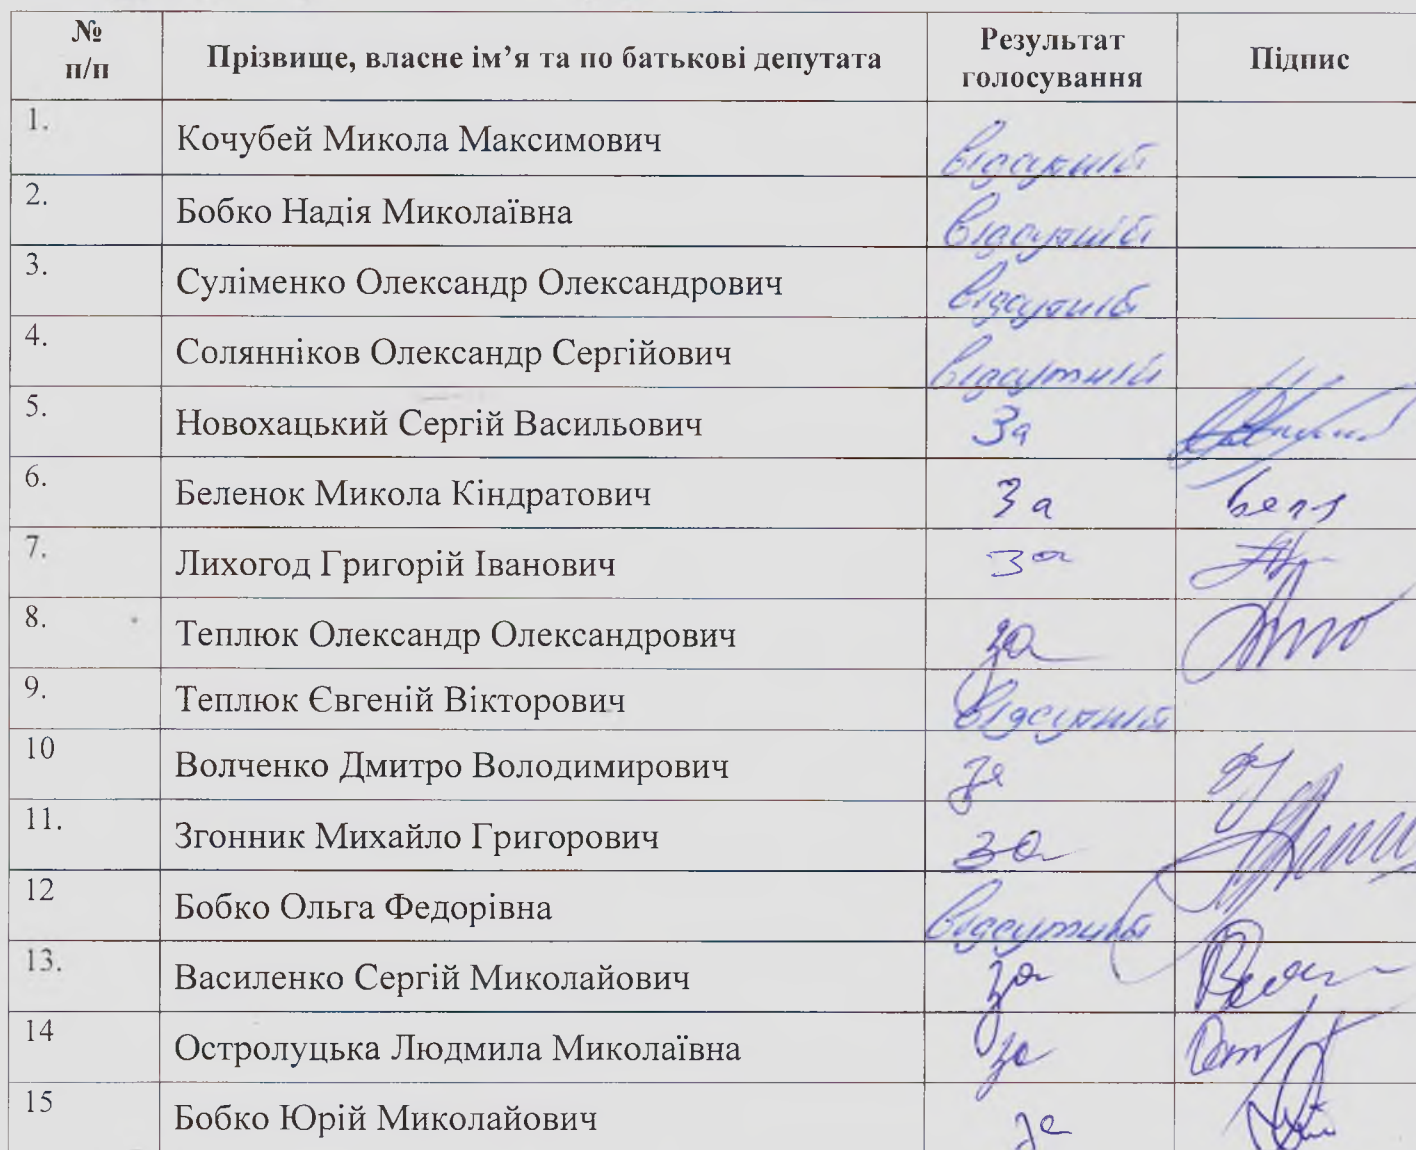 № п/п Прізвище, власне ім’я та по батькові депутата Результат голосування Підпис
1. Кочубей Микола Максимович відсутній
2. Бобко Надія Миколаївна відсутній
3. Суліменко Олександр Олександрович відсутній
4. Солянніков Олександр Сергійович відсутній
5. Новохацький Сергій Васильович За
6. Беленок Микола Кіндратович За
7. Лихогод Григорій Іванович за
8. Теплюк Олександр Олександрович за
9. Теплюк Євгеній Вікторович відсутній
10 Волченко Дмитро Володимирович за
11. Згонник Михайло Григорович за
12 Бобко Ольга Федорівна відсутній
13. Василенко Сергій Миколайович за
14 Остролуцька Людмила Миколаївна за
15 Бобко Юрій Миколайович за